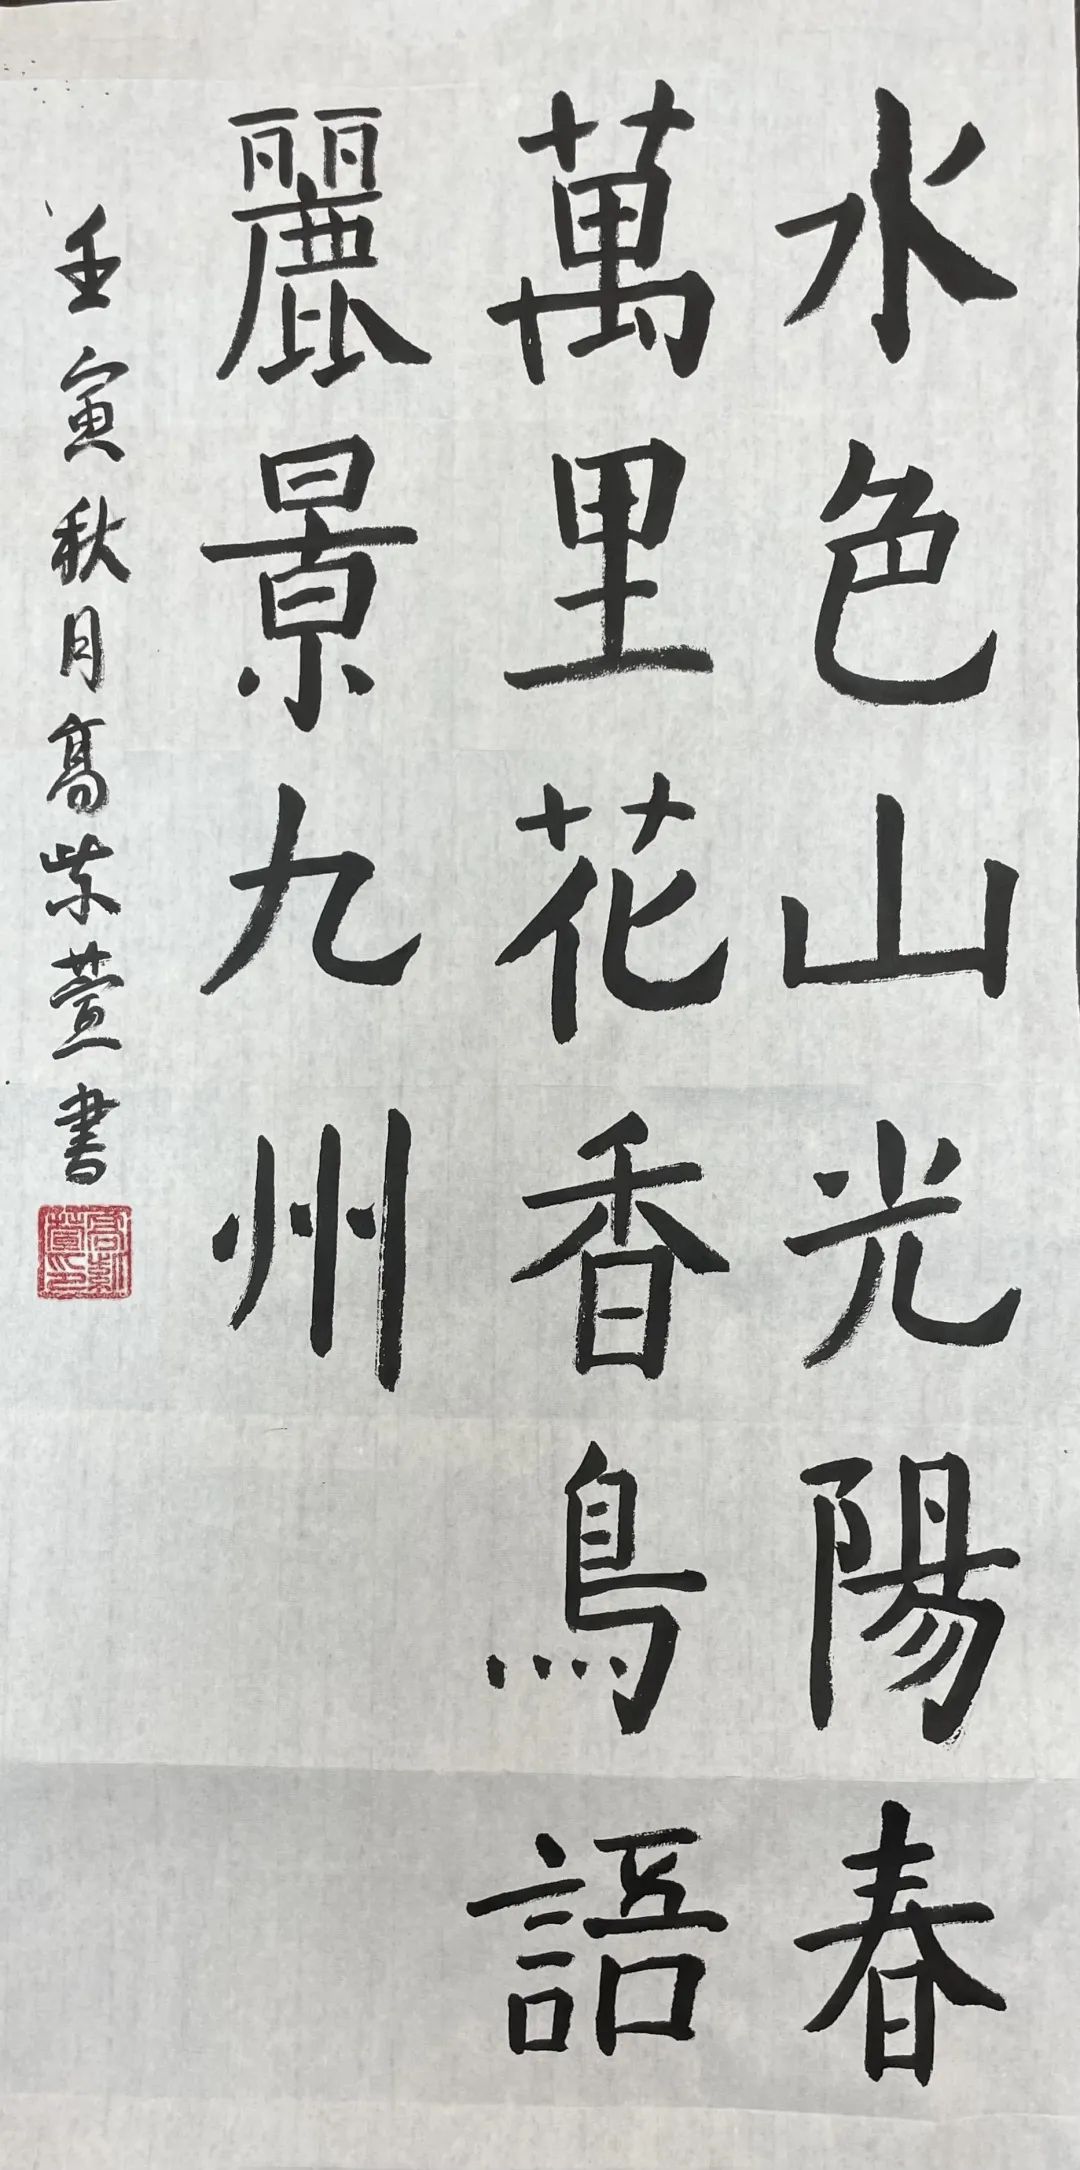 水色山光陽春
萬里花香鳥語
麗景九州
壬寅秋月高紫萱書